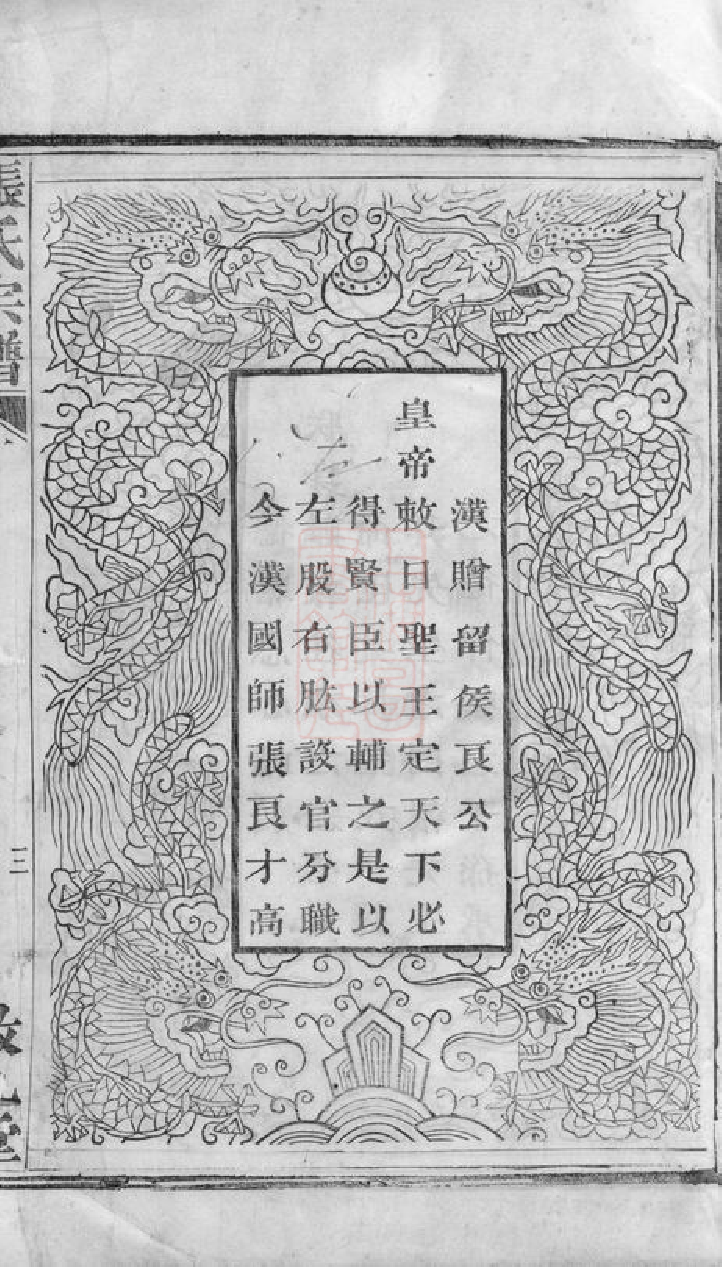 漢贈留侯良公
皇帝敕曰聖王定天下必
得賢臣以輔之是以
左股右肱設官分職
今漢國師張良才高
張氏宗譜
三